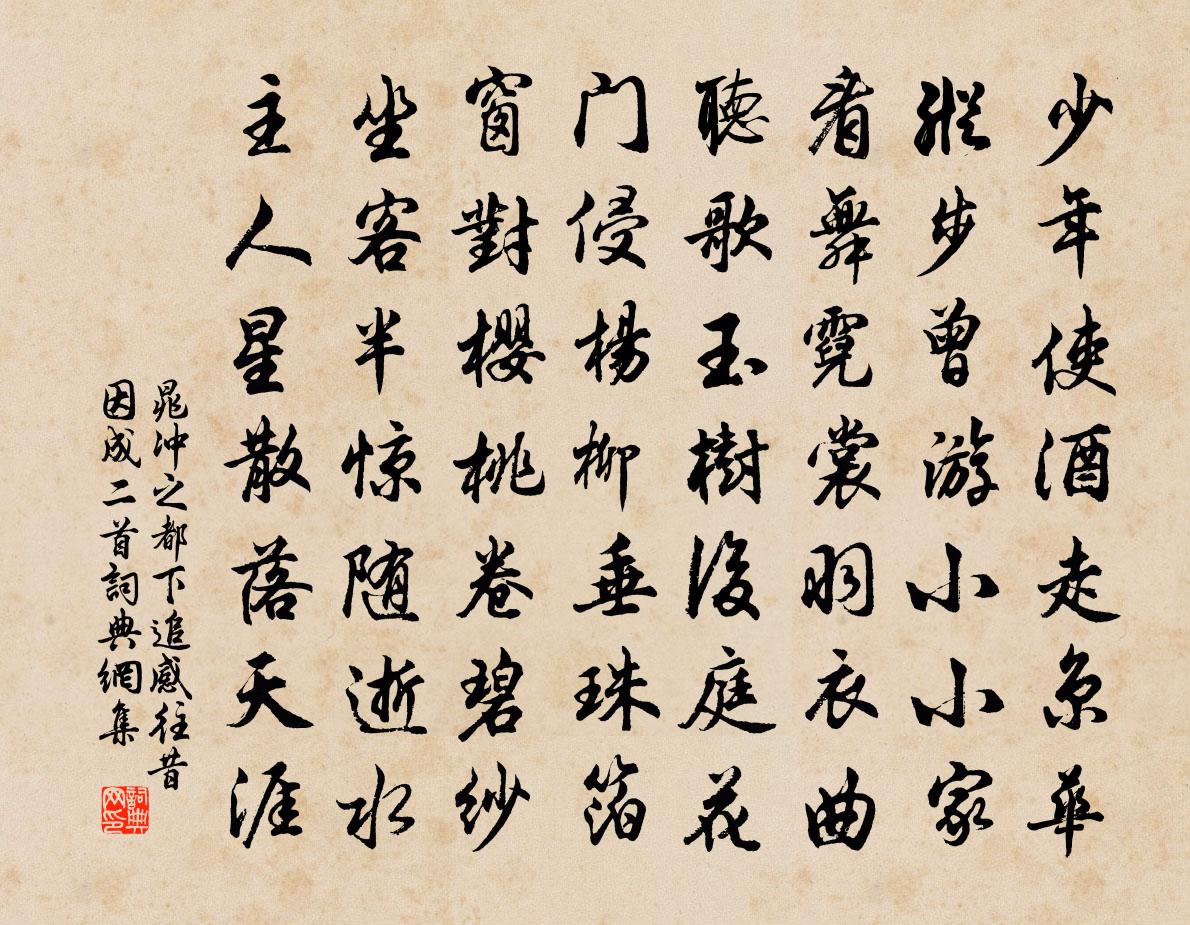 少年使酒走京華
縱步曾游小小家
看舞霓裳羽衣曲
聽歌玉樹後庭花
门侵楊柳垂珠箔
窗對櫻桃卷碧紗
坐客半惊随逝水
主人星散落天涯
晁冲之都下追感往昔
因成二首詞典網集
詞典
网印